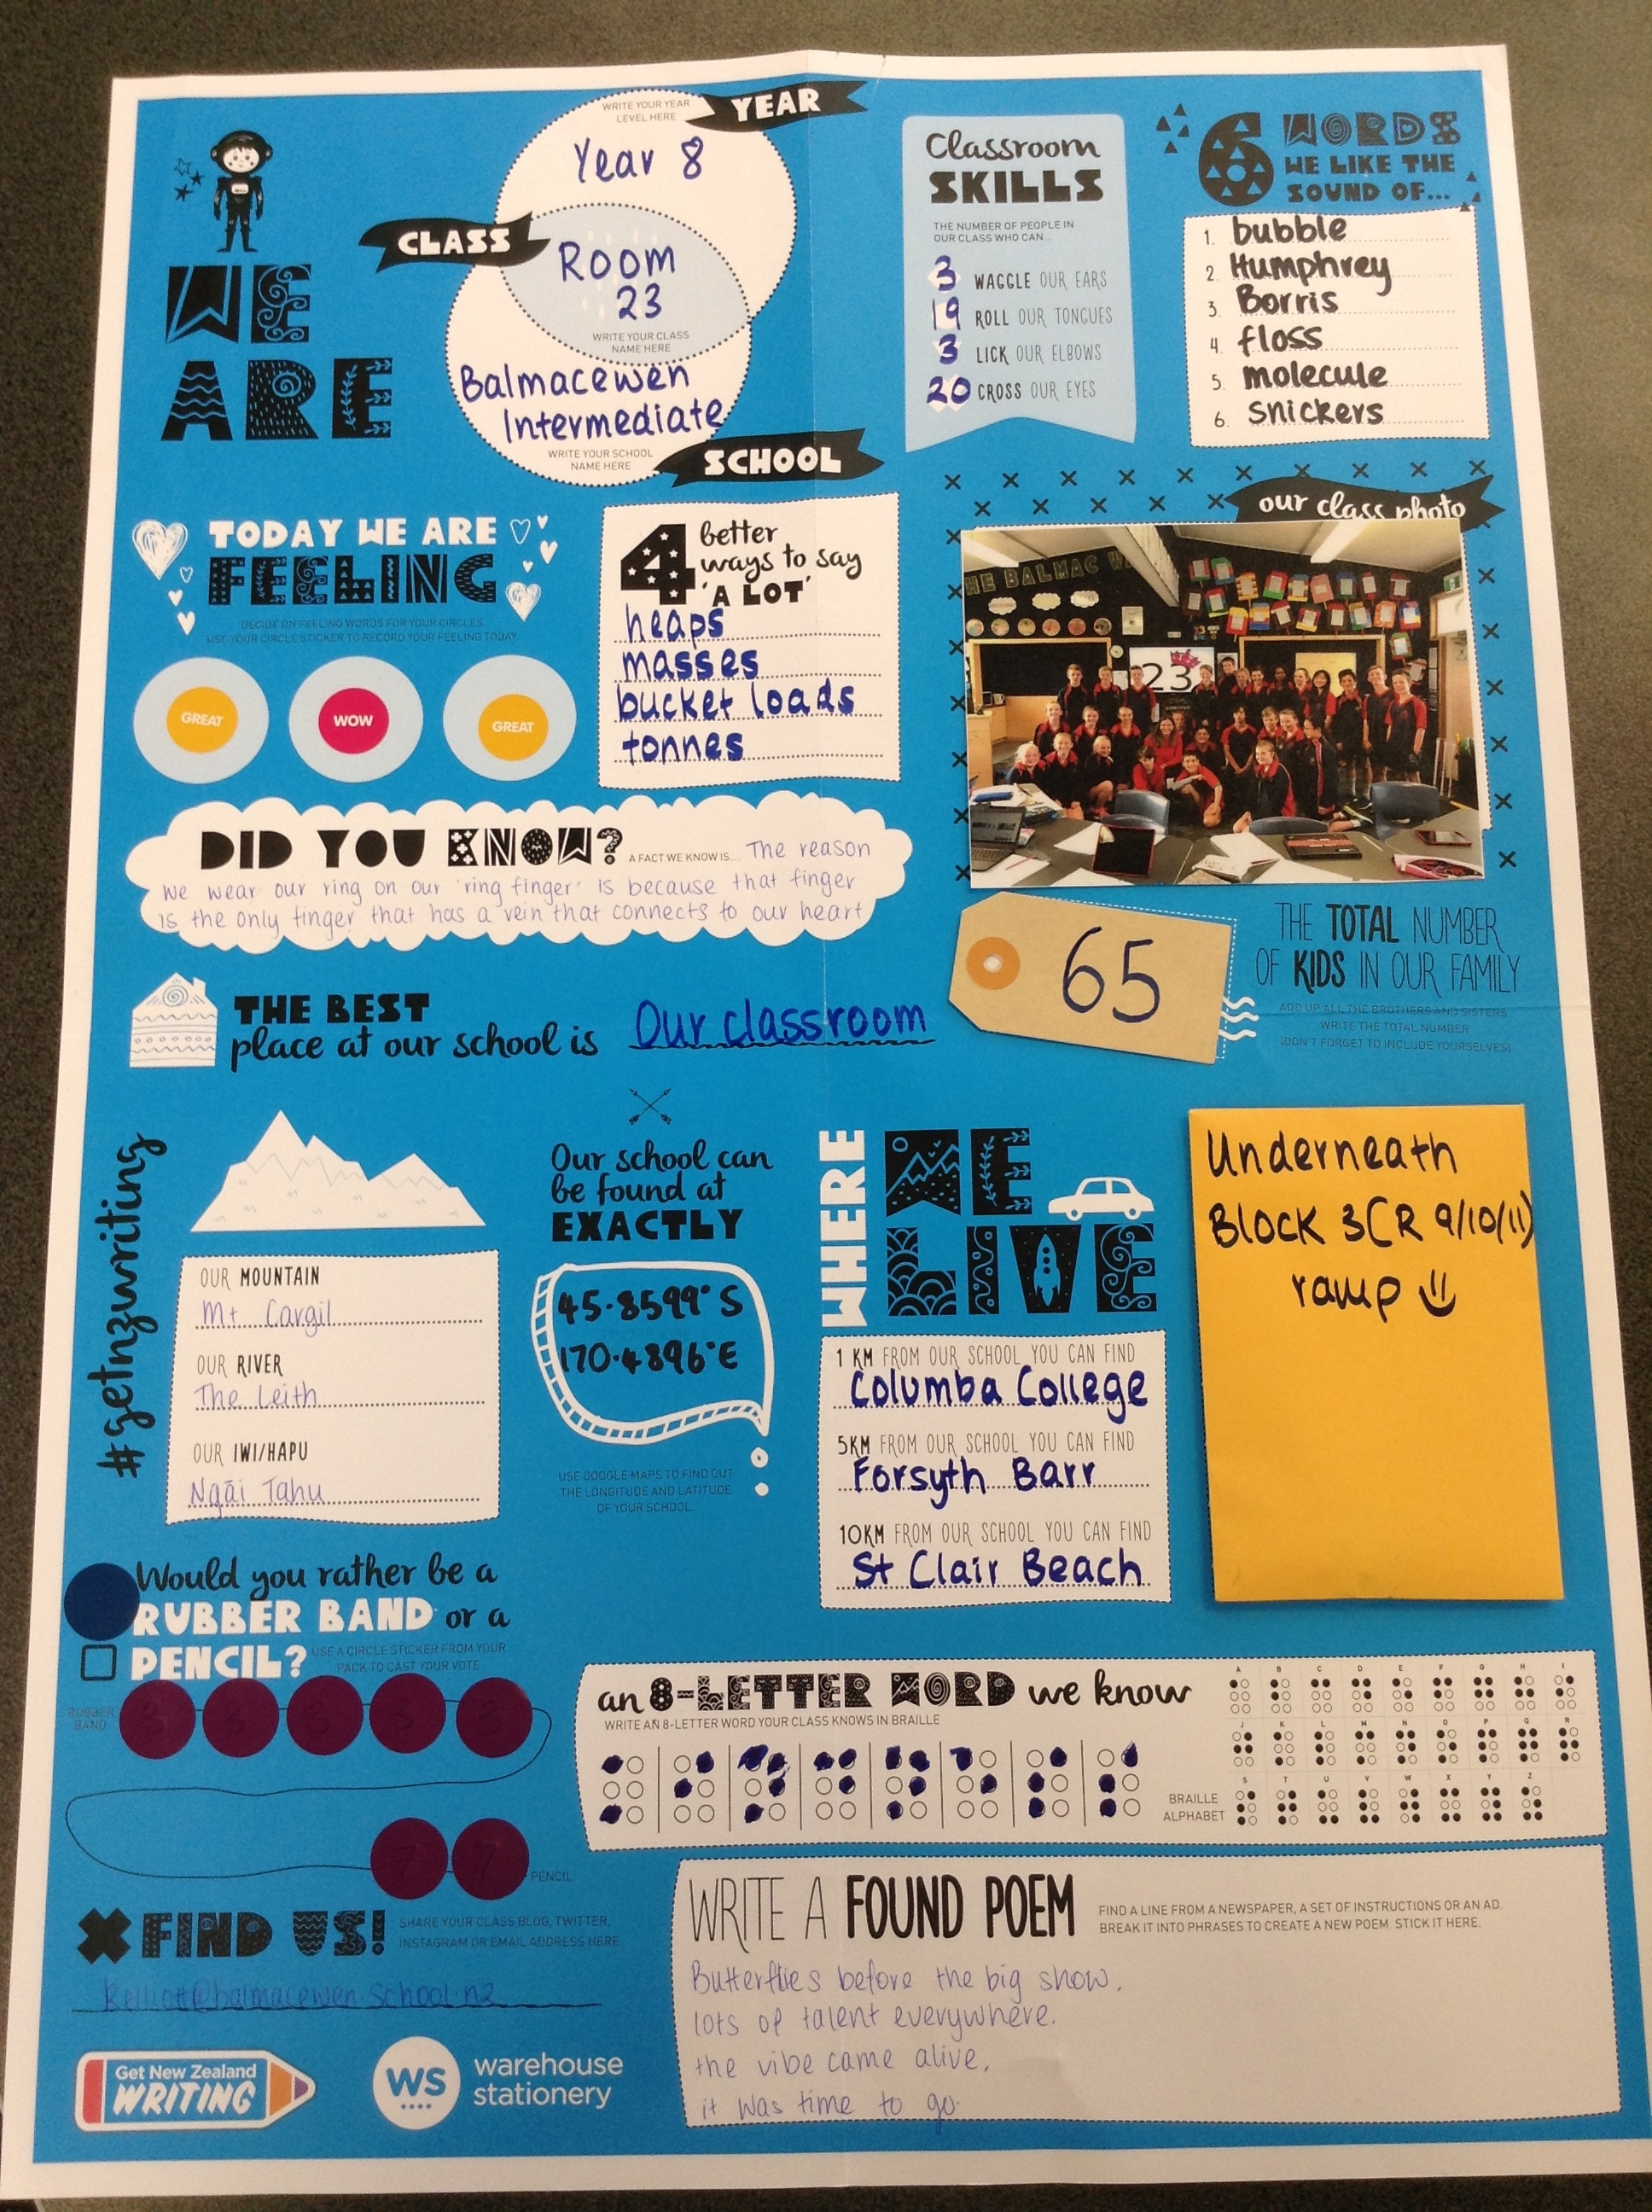 WRITE YOUR YEAR
LEVEL HERE
YEAR
Year 8
CLASS
Room
23
WRITE YOUR CLASS
NAME HERE
WE
ARE
Balmacewen
Intermediate
WRITE YOUR SCHOOL
NAME HERE
SCHOOL
Classroom
SKILLS
THE NUMBER OF PEOPLE IN
OUR CLASS WHO CAN...
3 WAGGLE OUR EARS
19 ROLL OUR TONGUES
3 LICK OUR ELBOWS
20 CROSS OUR EYES
6 WORDS
WE LIKE THE
SOUND OF...
1. bubble
2. Humphrey
3. Borris
4. floss
5. molecule
6. snickers
TODAY WE ARE
FEELING
DECIDE ON FEELING WORDS FOR YOUR CIRCLES.
USE YOUR CIRCLE STICKER TO RECORD YOUR FEELING TODAY.
GREAT
WOW
GREAT
4 better
ways to say
'A LOT'
heaps
masses
bucket loads
tonnes
our class photo
THE BALMAC W
23
DID YOU KNOW? A FACT WE KNOW IS.... The reason
we wear our ring on our 'ring finger' is because that finger
is the only finger that has a vein that connects to our heart
65
THE TOTAL NUMBER
OF KIDS IN OUR FAMILY
ADD UP ALL THE BROTHERS AND SISTERS.
WRITE THE TOTAL NUMBER
(DON'T FORGET TO INCLUDE YOURSELVES)
THE BEST
place at our school is Our classroom
#getnzwriting
OUR MOUNTAIN
Mt Cargil
OUR RIVER
The Leith
OUR IWI/HAPU
Ngāi Tahu
Our school can
be found at
EXACTLY
45.8599° S
170.4896°E
USE GOOGLE MAPS TO FIND OUT
THE LONGITUDE AND LATITUDE
OF YOUR SCHOOL.
WHERE
WE
LIVE
1 KM FROM OUR SCHOOL YOU CAN FIND
Columba College
5KM FROM OUR SCHOOL YOU CAN FIND
Forsyth Barr
10KM FROM OUR SCHOOL YOU CAN FIND
St Clair Beach
Underneath
Block 3(R 9/10/11)
ramp
Would you rather be a
RUBBER BAND or a
PENCIL? USE A CIRCLE STICKER FROM YOUR
PACK TO CAST YOUR VOTE
RUBBER
BAND
PENCIL
an 8-LETTER WORD we know
WRITE AN 8-LETTER WORD YOUR CLASS KNOWS IN BRAILLE
A B C D E F G H I
J K L M N O P Q R
S T U V W X Y Z
BRAILLE
ALPHABET
FIND US! SHARE YOUR CLASS BLOG, TWITTER,
INSTAGRAM OR EMAIL ADDRESS HERE
kelliott@balmacewen.school.nz
Get New Zealand
WRITING
WS
warehouse
stationery
WRITE A FOUND POEM
FIND A LINE FROM A NEWSPAPER, A SET OF INSTRUCTIONS OR AN AD.
BREAK IT INTO PHRASES TO CREATE A NEW POEM. STICK IT HERE.
Butterflies before the big show.
lots of talent everywhere.
the vibe came alive.
it was time to go.